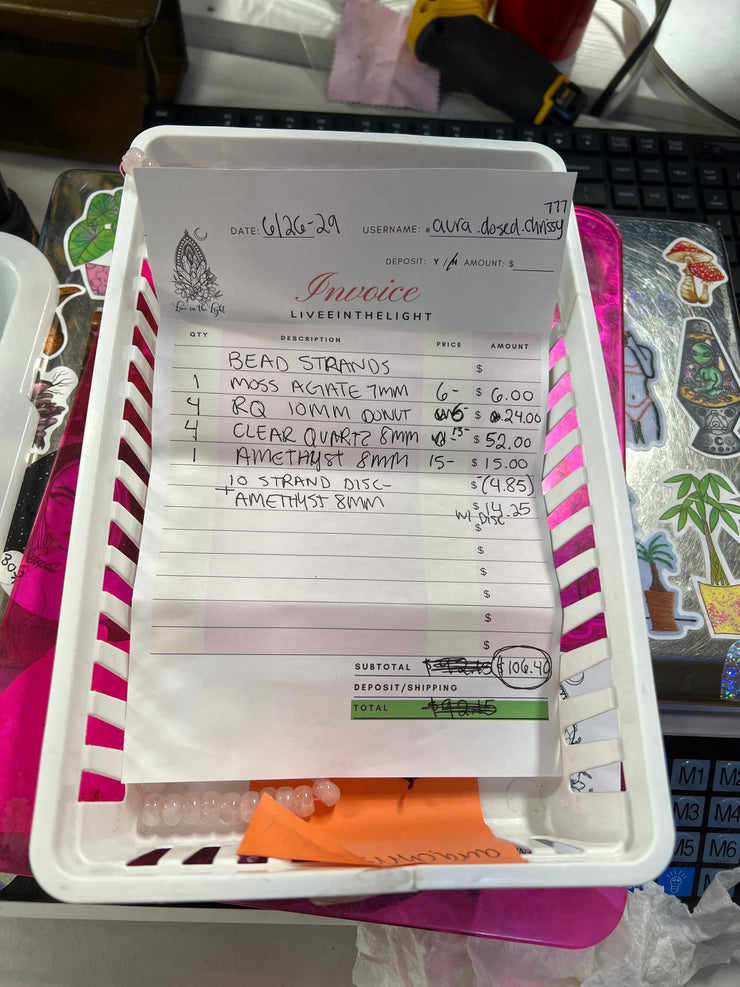 777
DATE: 6/26-29 USERNAME: aura.dosed.chrissy
DEPOSIT: Y / N AMOUNT: $
Live in the Light
Invoice
LIVEEINTHELIGHT
QTY DESCRIPTION PRICE AMOUNT
BEAD STRANDS $
1 MOSS AGATE 7MM 6- $ 6.00
4 RQ 10MM DONUT 6- $ 24.00
4 CLEAR QUARTZ 8MM 13- $ 52.00
1 AMETHYST 8MM 15- $ 15.00
10 STRAND DISC- $ -(4.85)
+ AMETHYST 8MM $ 14.25
W/ DISC
$
$
$
$
$
$
SUBTOTAL $92.15 $106.40
DEPOSIT/SHIPPING
TOTAL $92.15
M1
M3 M4
M5 M6